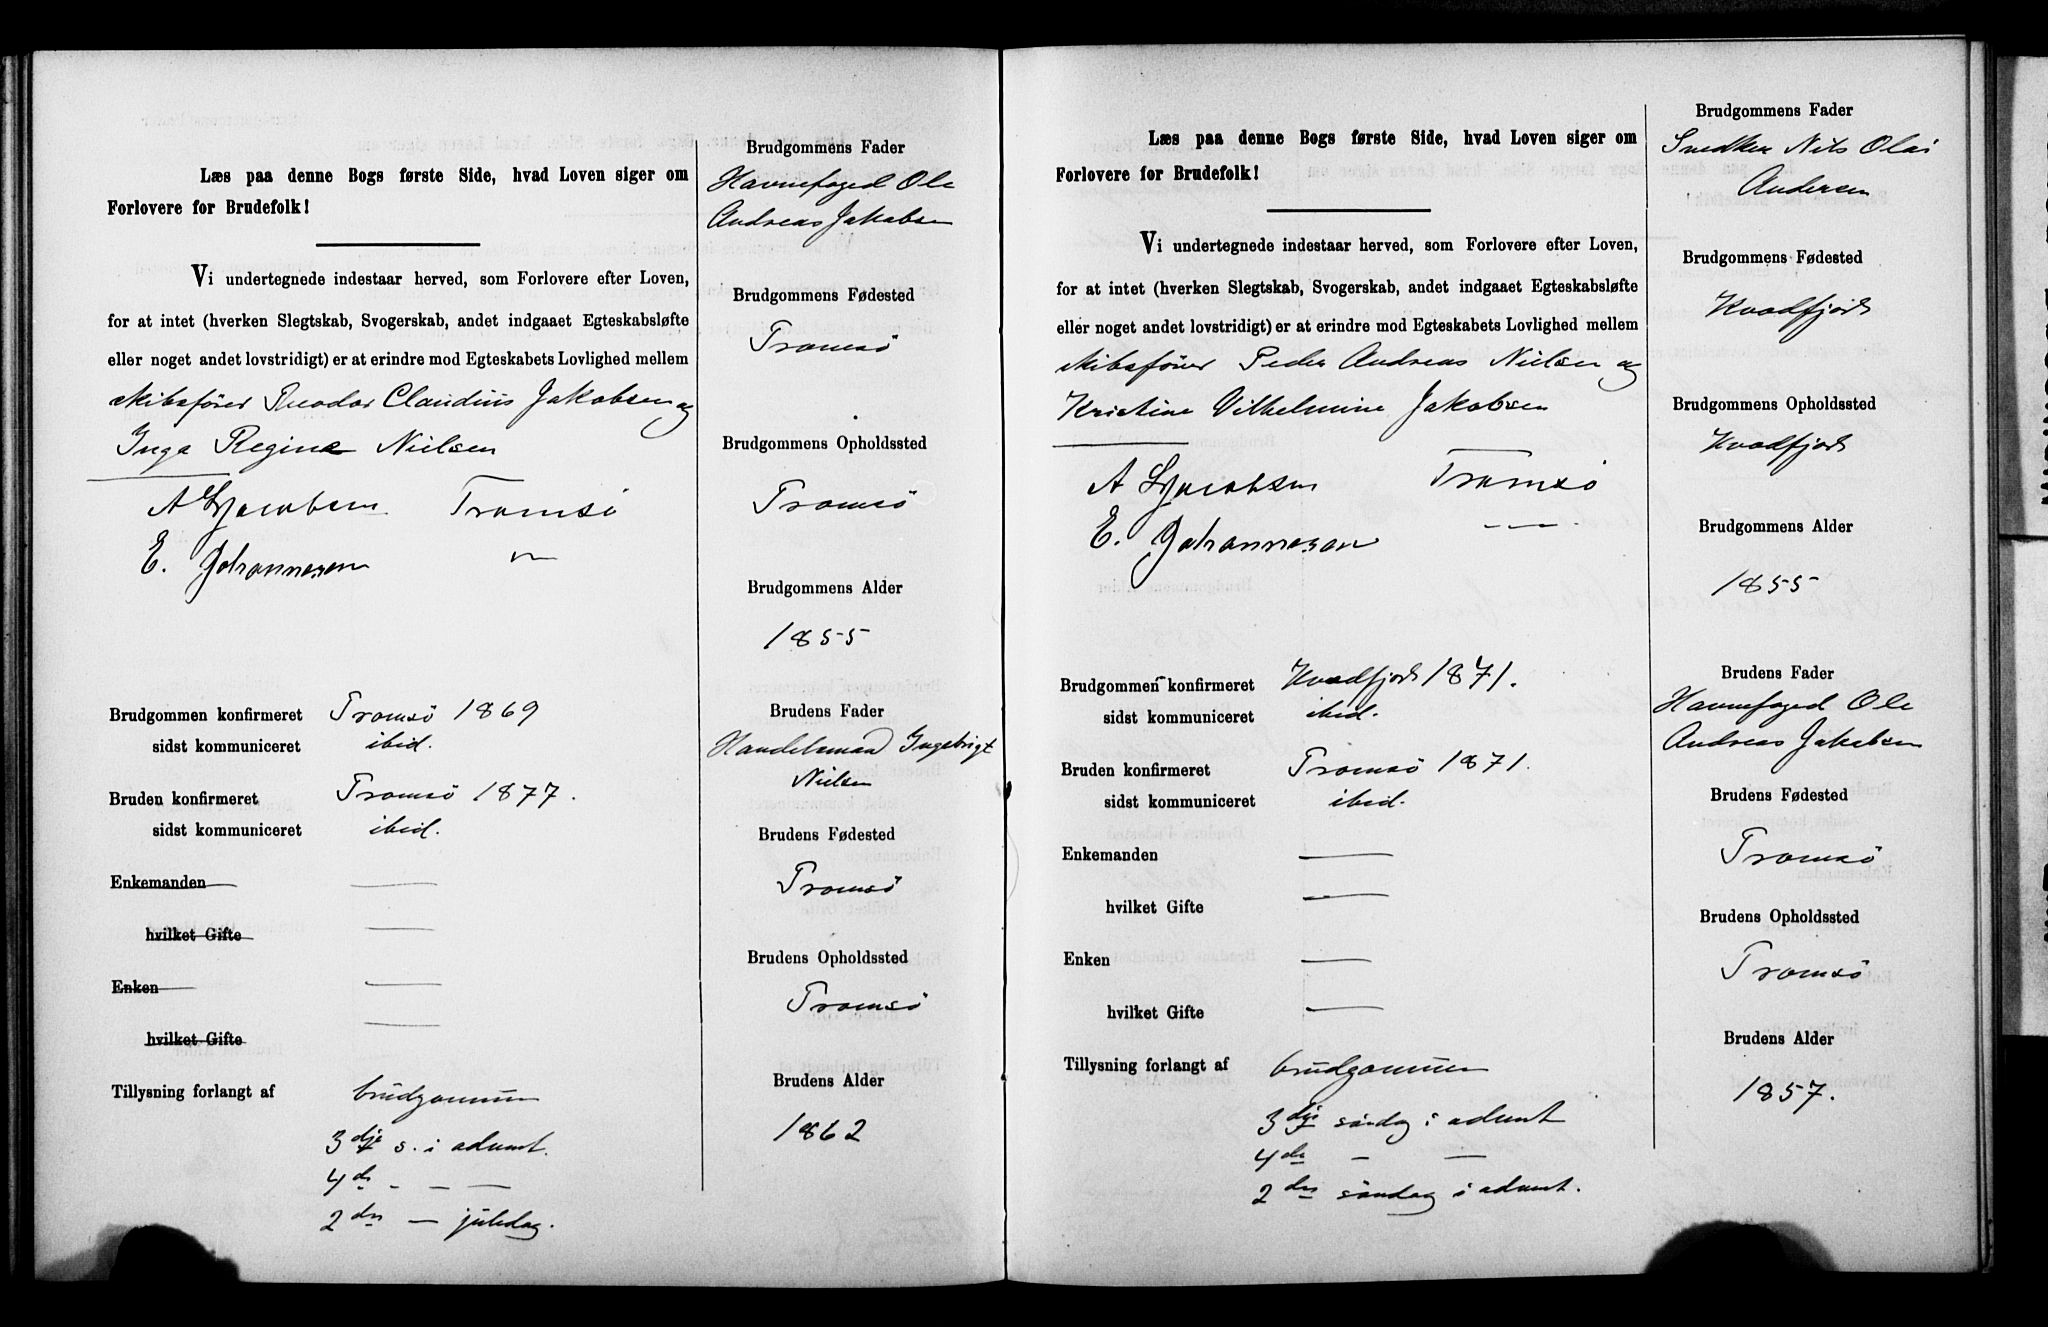 Læs paa denne Bogs første Side, hvad Loven siger om
Forlovere for Brudefolk!
Vi undertegnede indestaar herved, som Forlovere efter Loven,
for at intet (hverken Slegtskab, Svogerskab, andet indgaaet Egteskabsløfte
eller noget andet lovstridigt) er at erindre mod Egteskabets Lovlighed mellem
skibsfører Theodor Claudius Jakobsen og
Inga Regine Nielsen
A Jacobsen Tromsö
E. Johannesen
Brudgommen konfirmeret Tromsö 1869
sidst kommuniceret ibid.
Bruden konfirmeret Tromsö 1877.
sidst kommuniceret ibid.
Enkemanden
hvilket Gifte
Enken
hvilket Gifte
Tillysning forlangt af brudgommen
3dje s. i advent.
4de - - —
2den — juledag.
Brudgommens Fader
Havnefoged Ole
Andreas Jakobsen
Brudgommens Fødested
Tromsö
Brudgommens Opholdssted
Tromsö
Brudgommens Alder
1855
Brudens Fader
Handelsmand Ingebrigt
Nielsen
Brudens Fødested
Tromsö
Brudens Opholdssted
Tromsö
Brudens Alder
1862
Læs paa denne Bogs første Side, hvad Loven siger om
Forlovere for Brudefolk!
Vi undertegnede indestaar herved, som Forlovere efter Loven,
for at intet (hverken Slegtskab, Svogerskab, andet indgaaet Egteskabsløfte
eller noget andet lovstridigt) er at erindre mod Egteskabets Lovlighed mellem
skibsfører Peder Andreas Nielsen og
Kristine Vilhelmine Jakobsen
A Jacobsen Tromsö
E. Johannesen — —
Brudgommen konfirmeret Kvædfjord 1871.
sidst kommuniceret ibid.
Bruden konfirmeret Tromsö 1871.
sidst kommuniceret ibid.
Enkemanden
hvilket Gifte
Enken
hvilket Gifte
Tillysning forlangt af brudgommen
3dje söndag i advent
4de — —
2den söndag i advent.
Brudgommens Fader
Snedker Nils Olai
Andersen
Brudgommens Fødested
Kvædfjord
Brudgommens Opholdssted
Kvædfjord
Brudgommens Alder
1855
Brudens Fader
Havnefoged Ole
Andreas Jakobsen
Brudens Fødested
Tromsö
Brudens Opholdssted
Tromsö
Brudens Alder
1857.